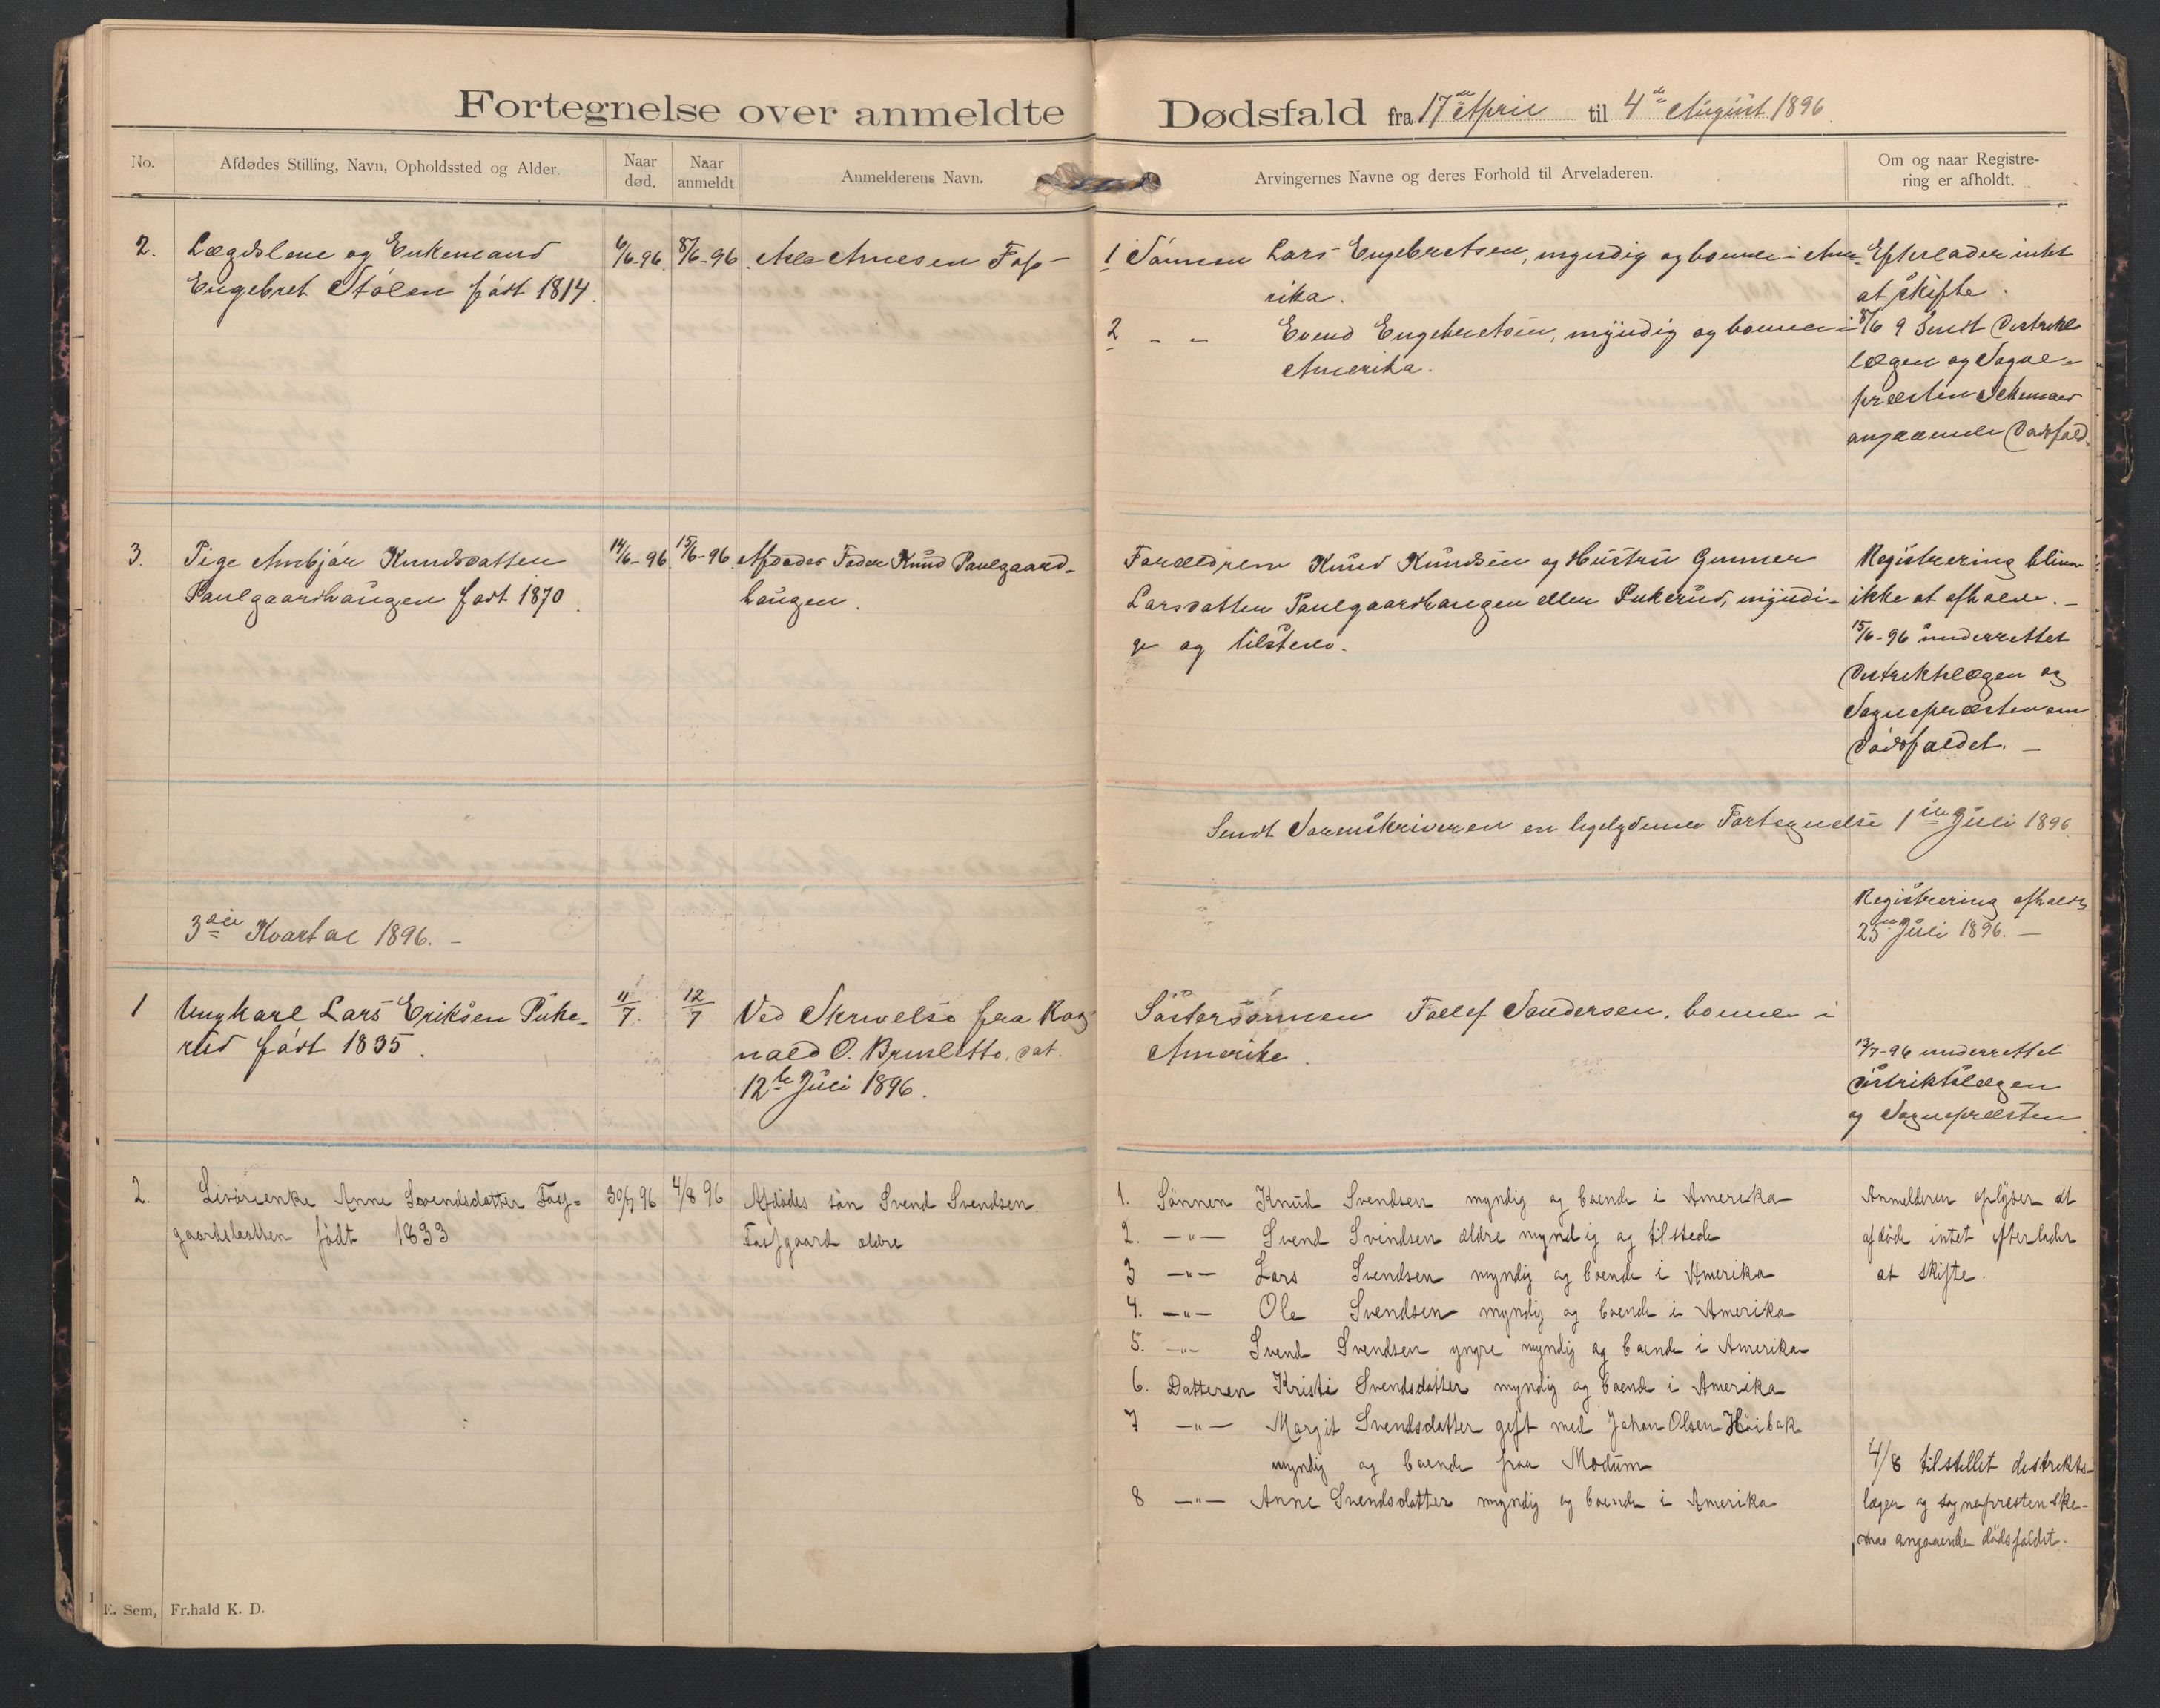 Fortegnelse over anmeldte Dødsfald fra 17de April til 4de August 1896.
No.
Afdødes Stilling, Navn, Opholdssted og Alder.
Naar død.
Naar anmeldt
Anmelderens Navn.
Arvingernes Navne og deres Forhold til Arveladeren.
Om og naar Registre-
ring er afholdt.
2. Lægdslem og Enkemand
Engebret Stølen født 1814.
6/6-96.
8/6-96
Arnesen Foss-
1 Sønnen Lars Engebretsen, myndig og boende i Ame-
rika.
2 " " Evend Engebretsen, myndig og boende i
Amerika.
Efterlader intet
at skifte.
8/6 9 Sendt Distrikts
lægen og Sogne-
præsten Skemaer
angaaende Dødsfald.
3. Pige Ambjør Knudsdatter
Paulgaardhaugen født 1870.
14/6-96.
15/6-96.
Afdødes Fader Knud Paulgaard-
haugen.
Forældrene Knud Knudsen og Hustru Gunner
Larsdatter Paulgaardhaugen eller Pukerud, myndi-
ge og tilstede.
Registrering bliver
ikke at afholde. -
15/6-96 underrettet
Distriktslægen og
Sognepræsten om
Dødsfaldet. -
Sendt Sorenskriveren en ligelydende Fortegnelse 1ste Juli 1896.
3die Kvartal 1896. -
Registrering afholdt
25de Juli 1896. -
1 Ungkarl Lars Eriksen Puke-
rud født 1835.
11/7.
12/7
Ved Skrivelse fra Rag
nald O. Brusletto, dat.
12te Juli 1896.
Søstersønnen Tollef Sandersen, boende i
Amerika.
13/7-96 underrettet
Distriktslægen
og Sognepræsten.
2. Livøreenke Anne Svendsdatter Foss-
gaardsleatten født 1833
30/7 96
4/8 96
Afdødes søn Svend Svendsen
Fossgaard ældre
1. Sønnen Knud Svendsen myndig og boende i Amerika
2. —"— Svend Svendsen ældre myndig og tilstede
3 —"— Lars Svendsen myndig og boende i Amerika
4. —"— Ole Svendsen myndig og boende i Amerika
5. —"— Svend Svendsen yngre myndig og boende i Amerika
6. Datteren Kristi Svendsdatter myndig og boende i Amerika
7 —"— Margit Svendsdatter gift med Johan Olsen Høibak
myndig og boende paa Modum
8 —"— Anne Svendsdatter myndig og boende i Amerika
Anmelderen oplyser at
afdøde intet efterlader
at skifte.
4/8 tilstillet distrikts-
lægen og sognepresten ske-
maa angaaende dødsfaldet.
E. Sem, Fr.hald K. D.